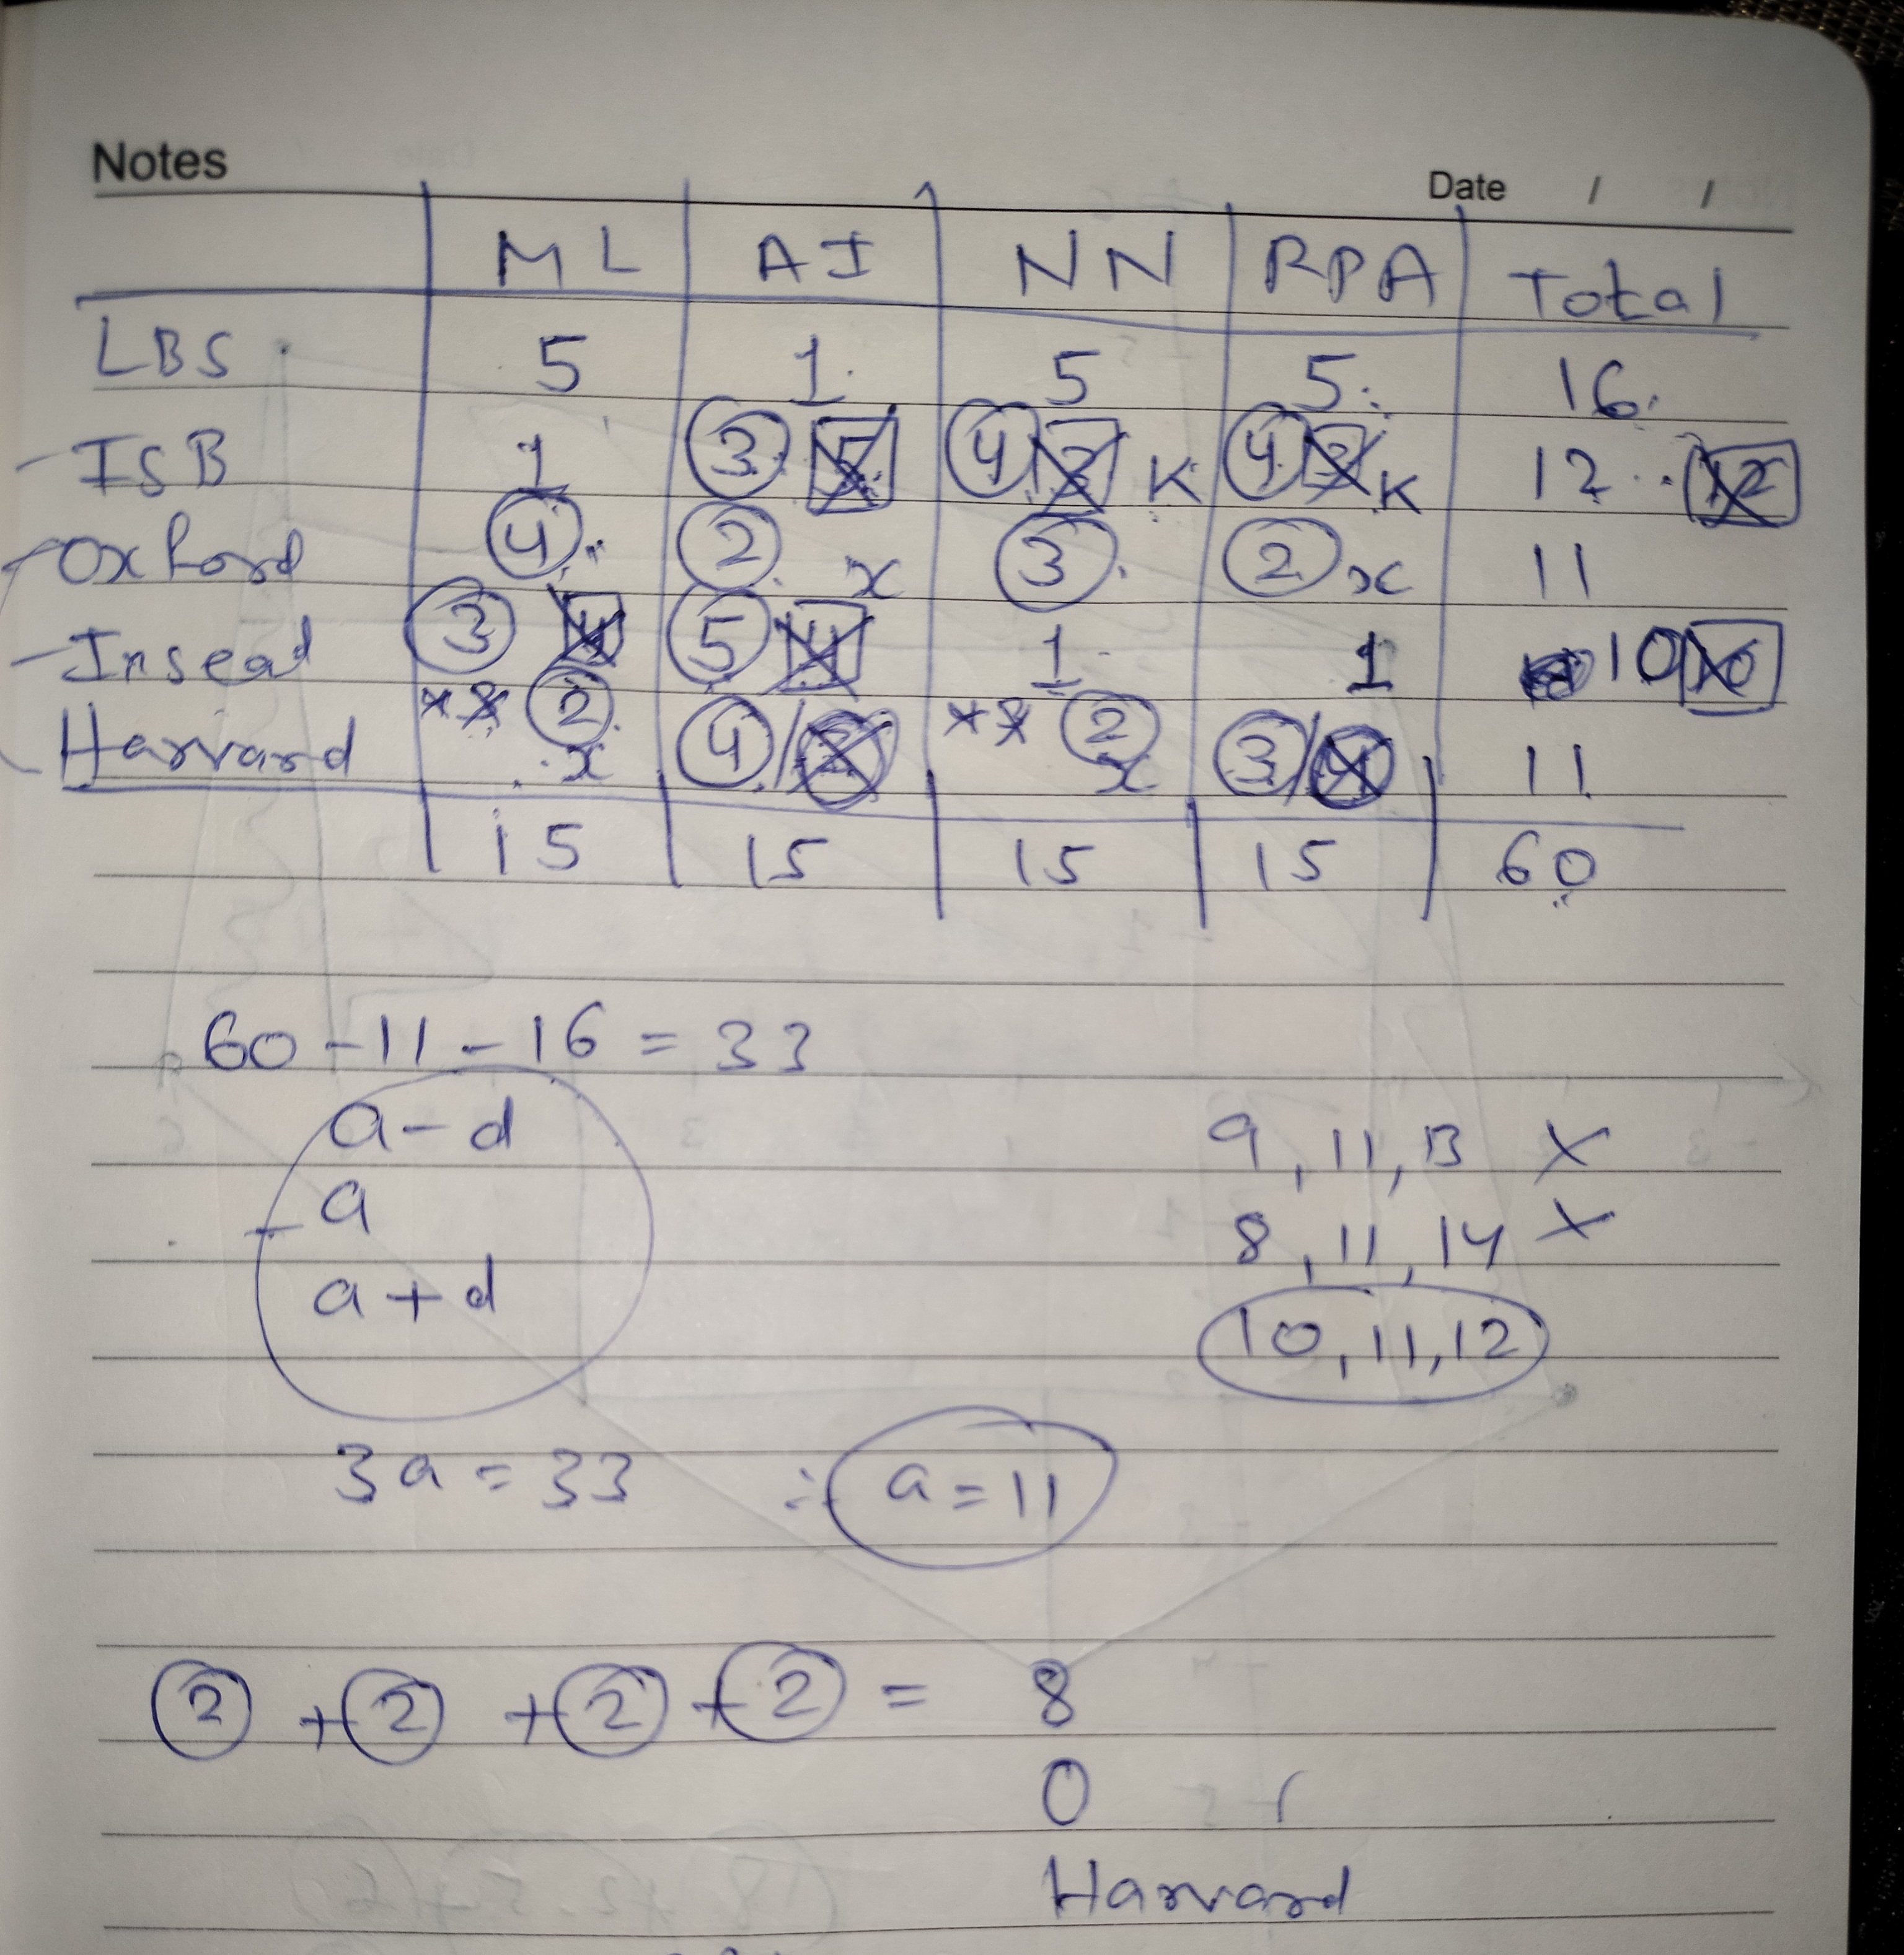 Notes
Date / /
ML AI NN RPA Total
LBS 5 1 5 5 16
ISB 1 3 5 4 3 K 4 3 K 12 12
Oxford 4 2 x 3 2 x 11
Insead 3 4 5 4 1 1 10 10
Harvard ** 2 x 4/ ** 2 x 3/4 11
15 15 15 15 60
60 - 11 - 16 = 33
a - d
9, 11, 13 X
a
8, 11, 14 X
a + d
10, 11, 12
3a = 33 ∴ a = 11
2 + 2 + 2 + 2 = 8
0
Harvard